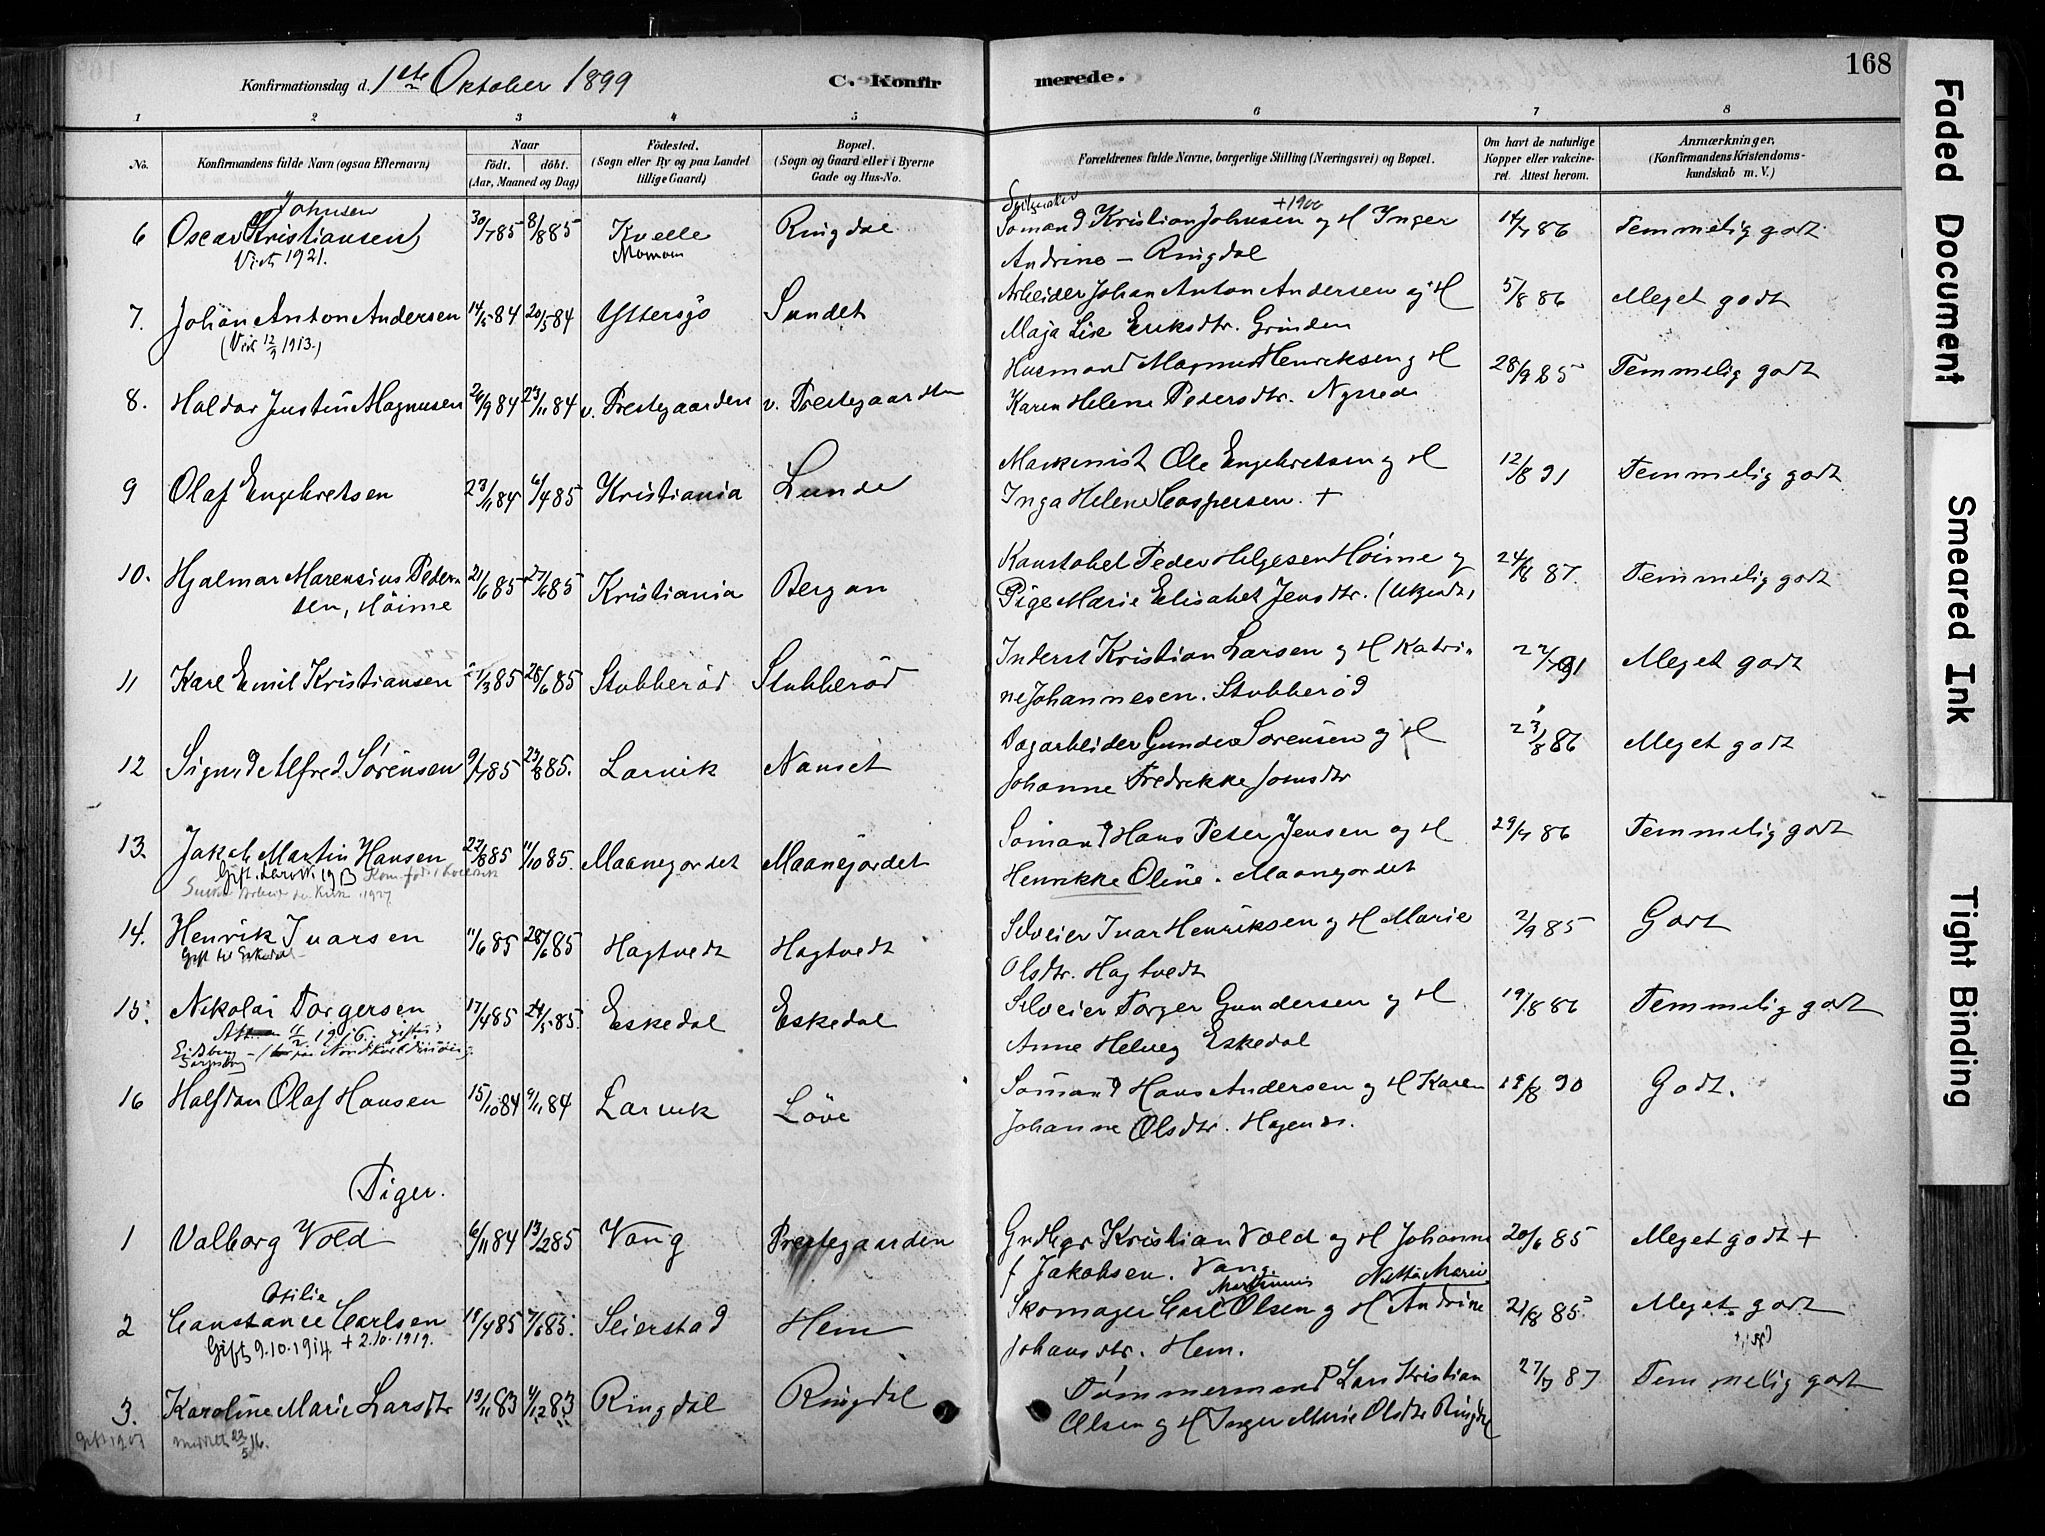 168
Konfirmationsdag d. 1ste Oktober 1899 C. Konfirmerede.
1 2 3 4 5 6 7 8
No. Konfirmandens fulde Navn (ogsaa Efternavn) Naar födt. döbt. (Aar, Maaned og Dag) Födested. (Sogn eller By og paa Landet tillige Gaard) Bopæl. (Sogn og Gaard eller i Byerne Gade og Hus-No. Forældrenes fulde Navne, borgerlige Stilling (Næringsvei) og Bopæl. Om havt de naturlige Kopper eller vaccineret. Attest herom. Anmærkninger. (Konfirmandens Kristendomskundskab m. V.)
Johnsen
6 Oscar Kristiansen 30/7 85 8/8 85 Kvelle Ringdal Sömand Kristian Johnsen +1900 og H Inger 14/7 86 Temmelig godt
Viet 1921. Andrine - Ringdal
7. Johan Anton Andersen 14/5 84 20/5 84 Yttersjö Sundet Arbeider Johan Anton Andersen og H 5/8 86 Meget godt
(Viet 12/9 1913.) Maja Lise Eriksdtr. Grinden
8. Haldor Justin Magnusen 26/9 84 23/11 84 v. Prestegaarden v. Prestegaarden Husmand Magnus Henriksen og H 28/9 85 Temmelig godt
Karen Helene Pedersdtr.
9 Olaf Engebretsen 23/11 84 6/4 85 Kristiania Lunde Maskinist Ole Engebretsen og H 12/8 91 Temmelig godt
Inga Helene Caspersen. +
10. Hjalmar Marensius Pedersen, Höime 21/6 85 27/6 85 Kristiania Bergan Konstabel Peder Helgesen Höime og 24/8 87. Temmelig godt
Pige Marie Elisabet Jensdtr. (Ukjendt)
11 Karl Emil Kristiansen 3 85 28/6 85 Stubberöd Stubberöd Inderst Kristian Larsen og H Katri- 22/7 91 Meget godt
ne Johannesen. Stubberöd
12 Sigurd Alfred Sörensen 9/7 85 23/8 85. Larvik Nanset Dagarbeider Gunder Sörensen og H 23/8 86 Meget godt
Johanne Fredrikke Jonsdtr
13. Jakob Martin Hansen 22/8 85 11/10 85. Maanejordet Maanejordet Sömand Hans Peter Jensen og H 29/7 86 Temmelig godt
Henrikke Oline. Maanejordet
14. Henrik Ivarsen 11/6 85 28/6 85 Hagtvedt Hagtvedt Selveier Ivar Henriksen og H Marie 2/9 85 Godt
Gift til Eskedal Olsdtr. Hagtvedt
15. Nikolai Torgersen 17/4 85 24/5 85. Eskedal Eskedal Selveier Torger Gundersen og H 19/8 86 Temmelig godt
1916. gift Anne Helvig Eskedal
Eidsberg
Sarpsborg
16 Halfdan Olaf Hansen 15/10 84 9/11 84 Larvik Löve Sömand Hans Andersen og H Karen 18/8 90 Godt.
Johanne Olsdtr. Hagenes.
Piger.
1 Valborg Vold 6/11 84 13/2 85 Vang Prestegaarden Grdbgr Kristian Vold og H Johanne 20/6 85 Meget godt +
f Jakobsen. Vang.
Otilie Martinius Netta Marie
2 Constance Carlsen 18/4 85 7/6 85. Seierstad Hem Skomager Carl Olsen og H Andrine 21/8 85. Meget godt
Gift 9.10.1914 + 2.10.1919. Johansdtr. Hem.
3. Karoline Marie Larsdtr 13/11 83 9/12 83 Ringdal Ringdal Tömmermand Lars Kristian 27/7 87 Temmelig godt
Gift 1907 Olsen og H Inger Marie Olsdtr Ringdal
Faded Document
Smeared Ink
Tight Binding